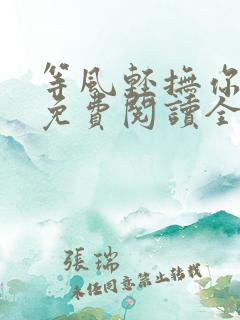 等風輕撫你
免費閱讀全
張瑞
未经同意禁止转载